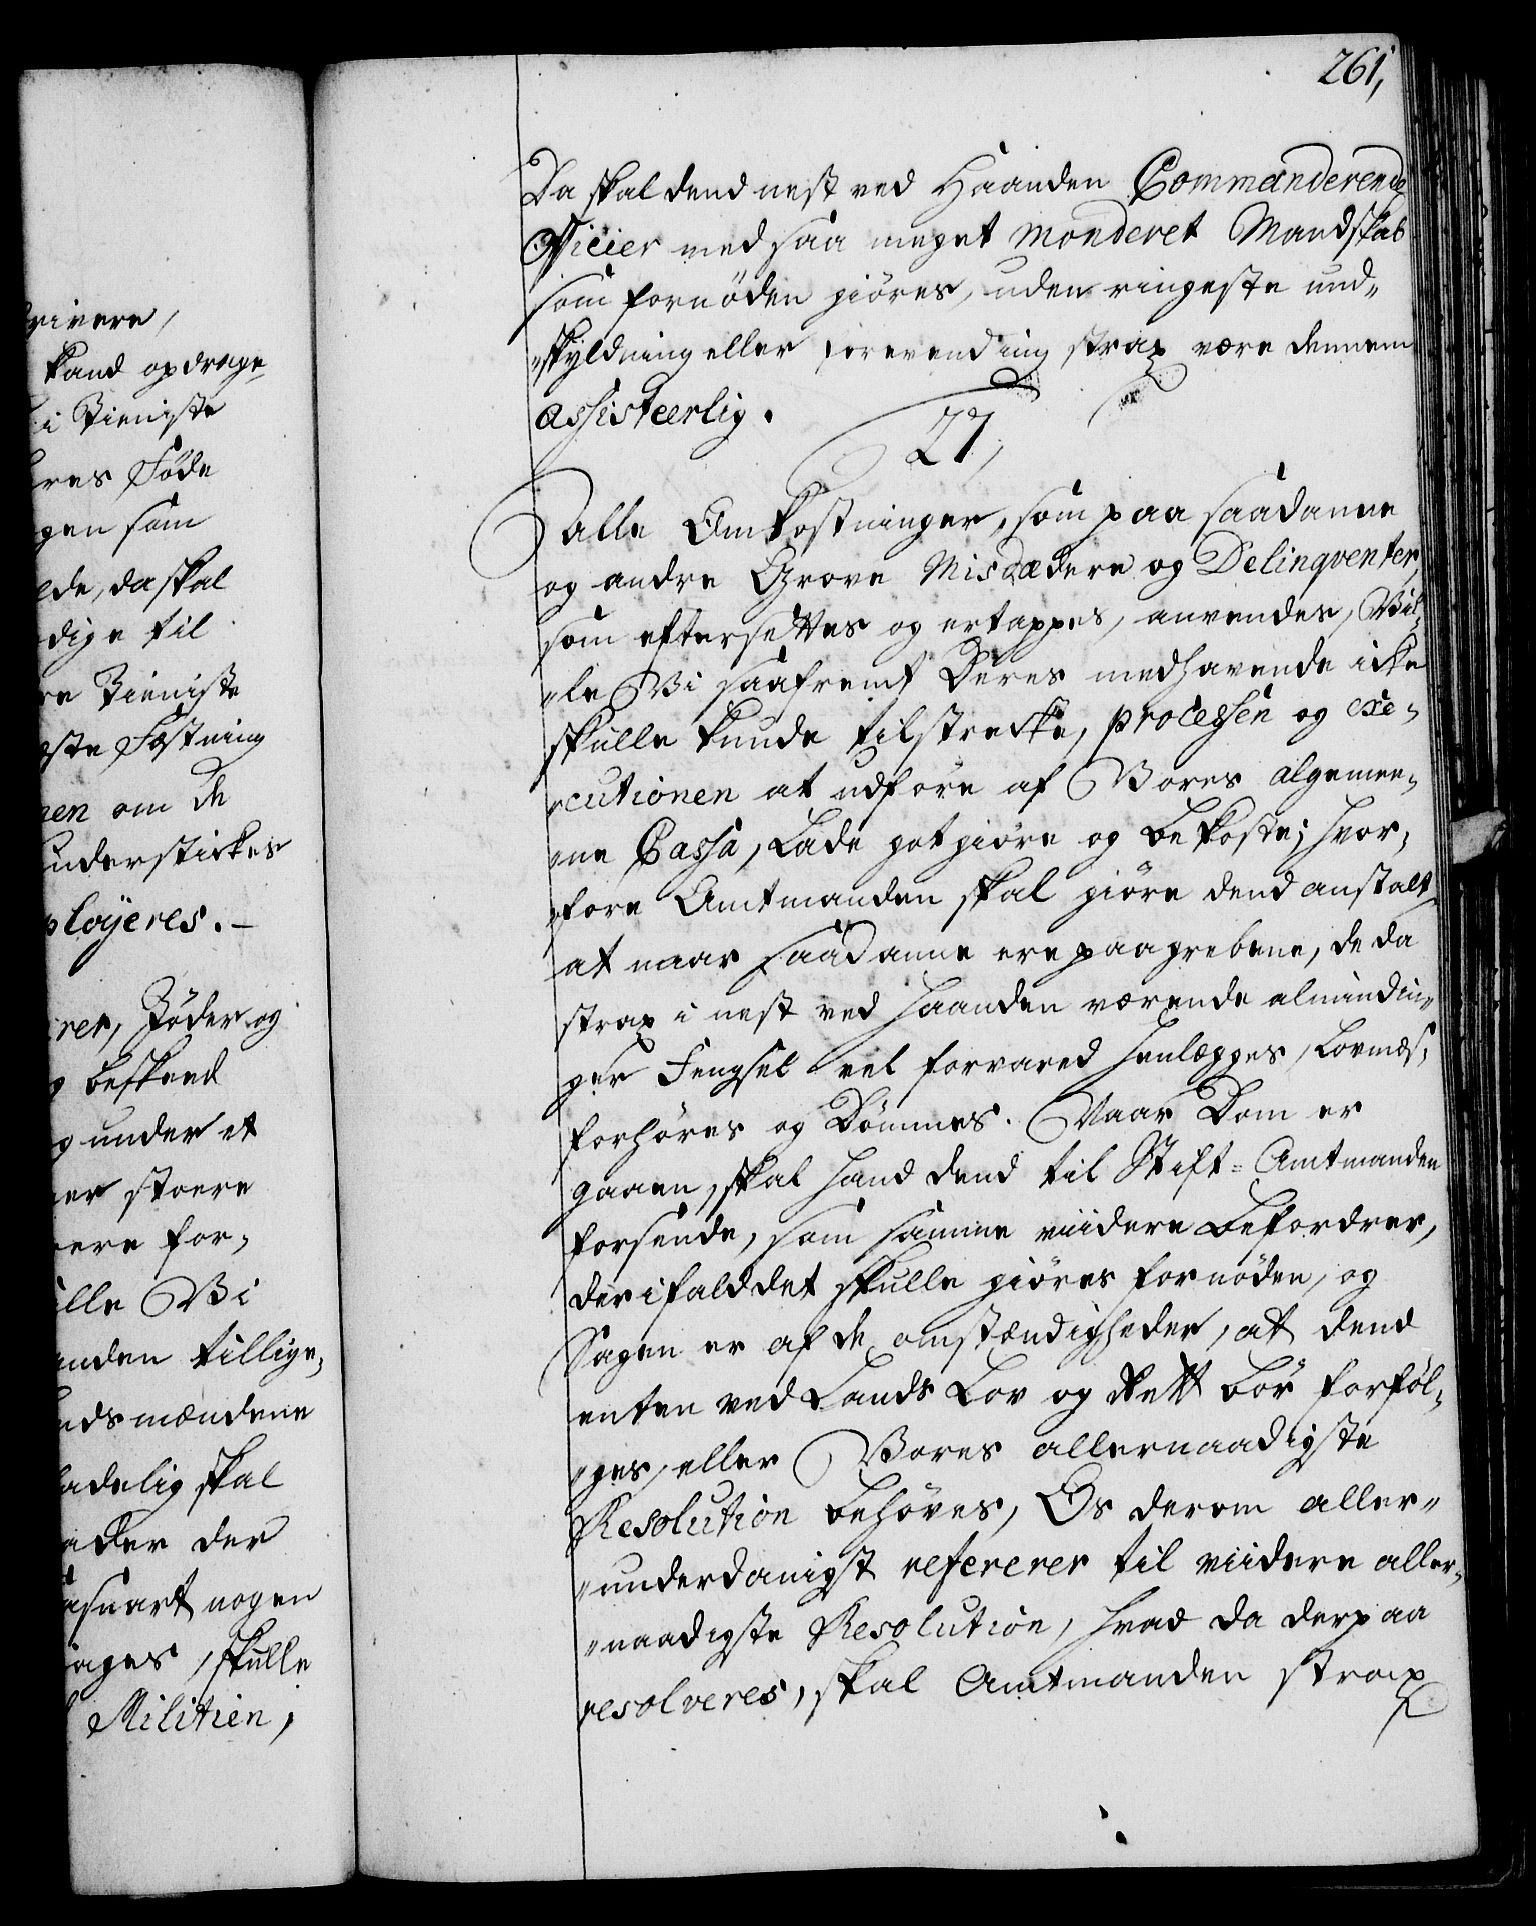 261,
Da skal dend nest ved Haanden Commanderende
Officier med saa meget monderet Mandskab
som fornöden giöres, uden ringeste und„
„skyldning eller forevending strax være dennem
assisteerlig.
27,
Alle Omkostninger, som paa saadanne
og andre Grove Misdædere og Delinqventer,
som eftersettes og ertappes, anvendes, Vil„
„le Vi saafremt Deres medhavende icke
skulle kunde tilstrecke, processen og exe„
„cutionen at udföre af Vores algemee„
„ne Cassa, Lade got giöre og bekoste; hvor„
„fore Amtmanden skal giöre dend anstalt,
at naar saadanne ere paagrebene, de da
strax i nest ved haanden værende almindin„
ger Fengsel vel forvared henlægges, Lovmæs:
forhöres og Dömmes. Naar Dom er
gaaen, skal hand dend til Stift-Amtmanden
forsende, som samme viidere befordrer,
der ifald det skulle giöres fornöden, og
Sagen er af de omstændigheder, at dend
enten ved Lands Lov og Rett bör forföl„
„ges, eller Vores allernaadigste
Resolution behöves, Os derom aller„
„underdanigst refererer til viidere aller„
„naadigste Resolution, hvad da derpaa
resolveres, skal Amtmanden strax
rivere,
kand opdrage
i Tieniste
res Föde
gen som
de, da skal
dige til
re Tieniste
ste Fæstning
nen om de
understickes
ployeres.-
rer, Jöder og
beskend
g under et
er stoere
ere for„
ille Vi
anden tillige„
ndsmændene
adelig skal
ader der
asnart nogen
ages, skulle
Militien,